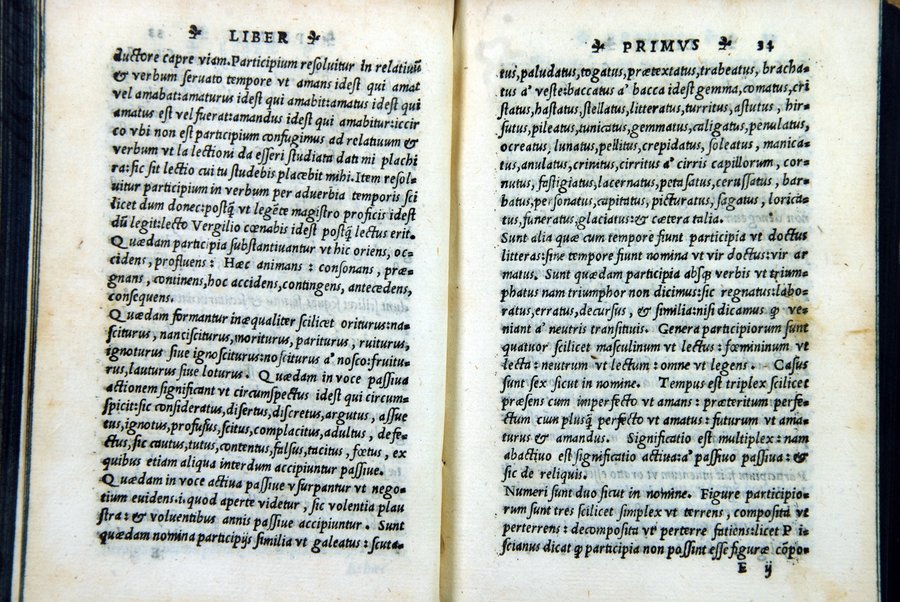 LIBER
ductore capre viam. Participium resoluitur in relatiuũ
& verbum seruato tempore vt amans idest qui amat
vel amabat:amaturus idest qui amabit:amatus idest qui
amatus est vel fuerat:amandus idest qui amabitur:iccir
co vbi non est participium confugimus ad relatiuum &
verbum vt la lectioni da esseri studiata dati mi plachi
ra:sic sit lectio cui tu studebis placebit mihi. Item resol=
uitur participium in verbum per aduerbia temporis sci
dicet dum donec:postq̃ vt legẽte magistro proficis idest
dũ legit:lecto Vergilio cœnabis idest postq̃ lectus erit.
Quædam participia substantiuantur vt hic oriens, oc=
cidens, profluens: Hæc animans: consonans, præ=
gnans, continens, hoc accidens, contingens, antecedens,
consequens.
Quædam formantur inæqualiter scilicet oriturus:na=
sciturus, nanciściturus, moriturus, pariturus, ruiturus,
ignoturus siue ignosciturus:nosciturus aᵒ nosco:fruitu=
rus, lauturus siue loturus. Quædam in voce passiua
actionem significant vt circumspectus idest qui circum=
spicit:sic consideratus, disertus, discretus, argutus, assue
tus, ignotus, profusus, scitus, complacitus, adultus, defe=
ctus, sic cautus, tutus, contentus, falsus, tacitus, fœtus, ex
quibus etiam aliqua interdum accipiuntur passiue.
Quædam in voce actiua passiue vsurpantur vt nego=
tium euidens.i. quod aperte videtur, sic volentia plau
stra: & voluentibus annis passiue accipiuntur. Sunt
quædam nomina participijs similia vt galeatus: scuta=
PRIMVS 34
tus, paludatus, togatus, prætextatus, trabeatus, bracha=
tus aᵒ veste:baccatus aᵒ bacca idest gemma, comatus, cri
status, hastatus, stellatus, litteratus, turritus, astutus, hir=
sutus, pileatus, tunicatus, gemmatus, caligatus, penulatus,
ocreatus, lunatus, pellitus, crepidatus, soleatus, manica=
tus, anulatus, crinitus, cirritus aᵒ cirris capillorum, cor=
nutus, fastigiatus, lacernatus, petasatus, cerussatus, bar=
batus, personatus, capitatus, picturatus, sagatus, lorica=
tus, funeratus, glaciatus:& cætera talia.
Sunt alia quæ cum tempore fiunt participia vt doctus
litteras:sine tempore fiunt nomina vt vir doctus:vir ar
matus. Sunt quædam participia absq̃ verbis vt trium=
phatus nam triumphor non dicimus:sic regnatus:labo=
ratus, erratus, decursus, & similia:nisi dicamus ꝙ ve=
niant aᵒ neutris transituis. Genera participiorum sunt
quatuor scilicet masculinum vt lectus: fœmininum vt
lecta: neutrum vt lectum: omne vt legens. Casus
sunt sex sicut in nomine. Tempus est triplex scilicet
præsens cum imperfecto vt amans: præteritum perfe=
ctum cum plusq̃ perfecto vt amatus: futurum vt ama=
turus & amandus. Significatio est multiplex: nam
abactiuo est significatio actiua:aᵒ passiuo passiua: &
sic de reliquis.
Numeri sunt duo sicut in nomine. Figure participio=
rum sunt tres scilicet simplex vt terrens, composita vt
perterrens: decomposita vt perterrefatiens:licet P ri
scianus dicat ꝙ participia non possint esse figuræ cõpo=
E ij